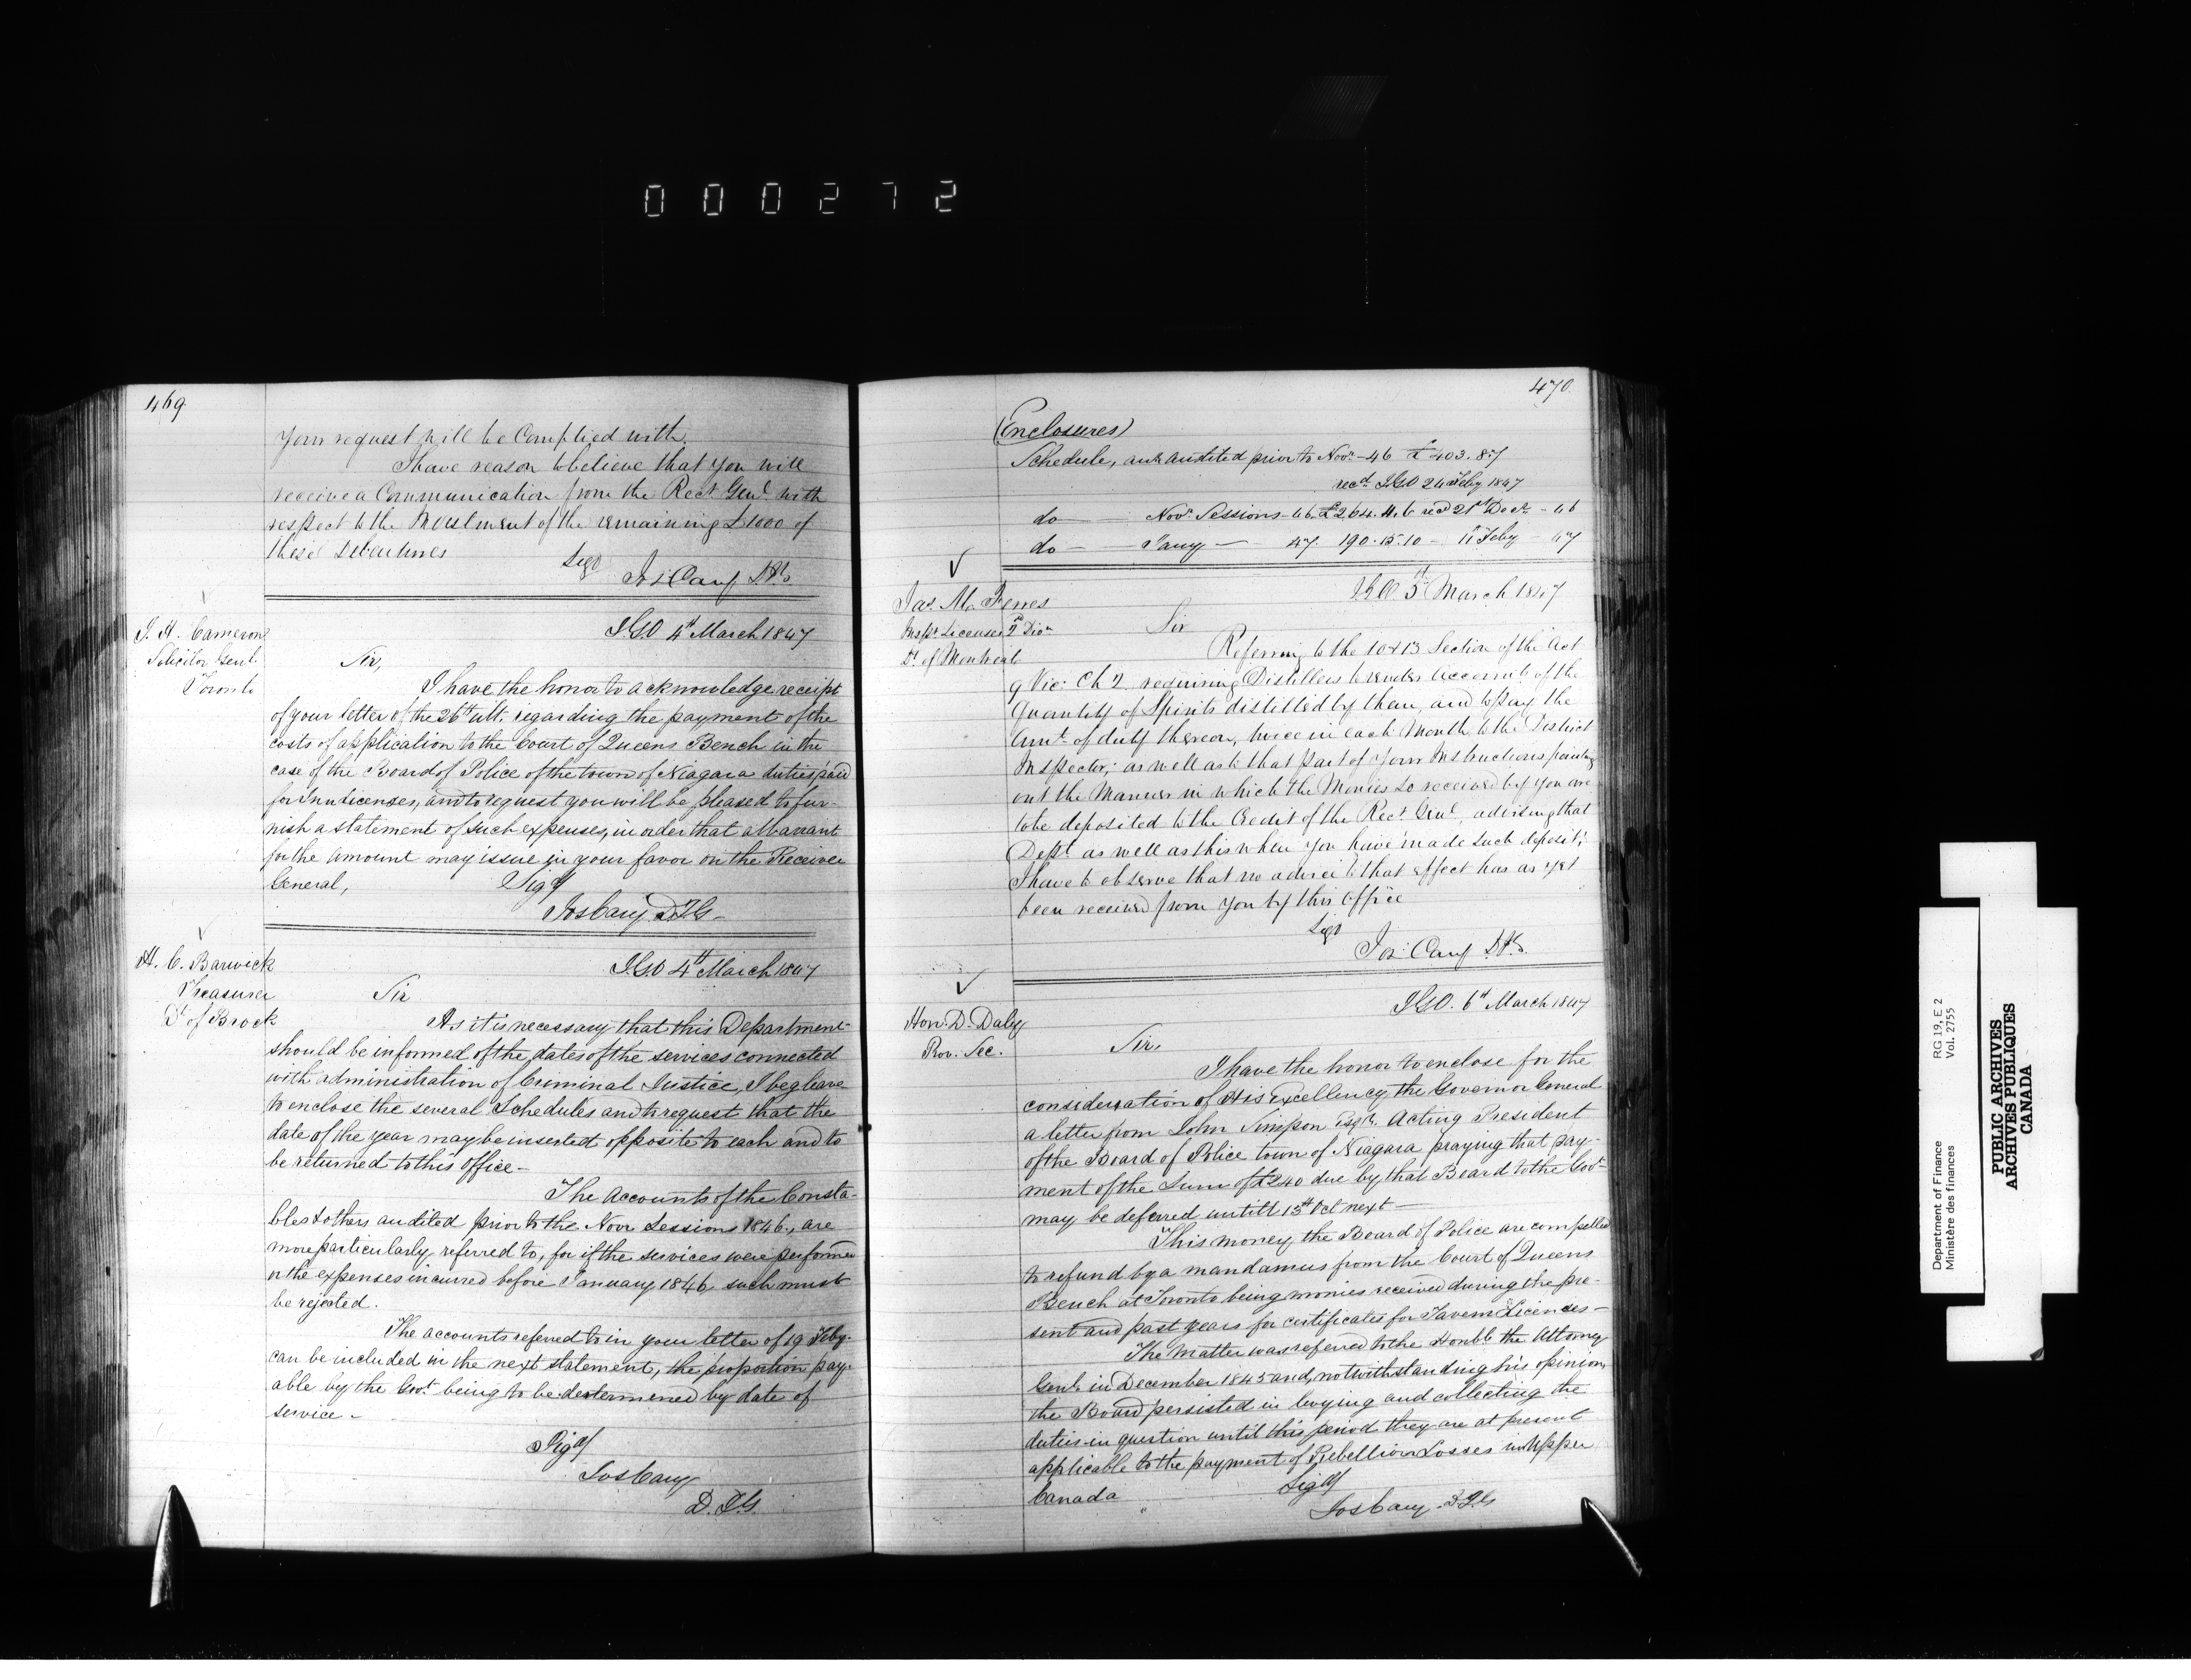 000272
469
your request will be Complied with.
I have reason to believe that you will
receive a Communication from the Recr Genl with
respect to the Investment of the remaining £1000 of
these Debentures
Sigd
Jos Cary D.I.G.
J. H. Cameron
Solicitor Genl.
Toronto
I.G.O 4th March 1847
Sir,
I have the honor to acknowledge receipt
of your letter of the 26th ult. regarding the payment of the
costs of application to the Court of Queens Bench in the
case of the Board of Police of the town of Niagara duties paid
for Inn Licenses, and to request you will be pleased to fur-
nish a statement of such expenses, in order that a Warrant
for the Amount may issue in your favor on the Receiver
General,
Sigd
Jos Cary D.I.G.
H. C. Barwick
Treasurer
Dt of Brock
I.G.O 4th March 1847
Sir
As it is necessary that this Department
should be informed of the dates of the services connected
with administration of Criminal Justice, I beg leave
to enclose the several Schedules and to request that the
date of the year may be inserted opposite to each and to
be returned to this office -
The Accounts of the Consta-
bles & others audited prior to the Novr Sessions 1846, are
more particularly referred to, for if the services were performed
or the expenses incurred before January 1846 such must
be rejected.
The accounts referred to in your letter of 19 Feby
can be included in the next statement, the proportion pay-
able by the Govt. being to be determined by date of
service -
Sigd
Jos Cary
D.I.G.
470
(Enclosures)
Schedule, audited prior to Novr - 46 £403.8.7
recd. IGO 24 Feby 1847
do Novr Sessions - 46 £264.11.6 recd 21st Decr - 46
do Jany 47. 190.15.10 - 11 Feby - 47
Jas. M. Ferres
Inspr Licenses 2d Divn
Dt. of Montreal
I.G.O. 5th March 1847
Sir
Referring to the 10 & 13 Section of the Act
9 Vic: Ch 2 requiring Distillers to render Accounts of the
Quantity of Spirits distilled by them, and to pay the
Amt. of duty thereon, twice in each Month to the District
Inspector; as well as to that part of your Instructions pointing
out the Manner in which the Monies so received by you are
to be deposited to the Credit of the Recr. Genl, advising that
Dept. as well as this when you have made such deposit;
I have to observe that no advice to that effect has as yet
been received from you by this Office
Sigd
Jos: Cary D.I.G.
Hon. D. Daly
Prov. Sec.
I.G.O. 6th March 1847
Sir,
I have the honor to enclose for the
consideration of His Excellency the Governor General
a letter from John Simpson Esqr. Acting President
of the Board of Police town of Niagara praying that pay-
ment of the Sum of £240 due by that Board to the Govt
may be deferred untill 15th Oct next -
This money the Board of Police are compelled
to refund by a mandamus from the Court of Queens
Bench at Toronto being monies received during the pre-
sent and past years for certificates for Tavern Licenses -
The Matter was referred to the Honble the Attorney
Genl. in December 1845 and, notwithstanding his opinion
the Board persisted in levying and collecting the
duties in question until this period they are at present
applicable to the payment of Rebellion Losses in Upper
Canada
Sigd
Jos Cary D.I.G
Department of Finance RG 19, E 2
Ministère des finances Vol. 2755
PUBLIC ARCHIVES
ARCHIVES PUBLIQUES
CANADA